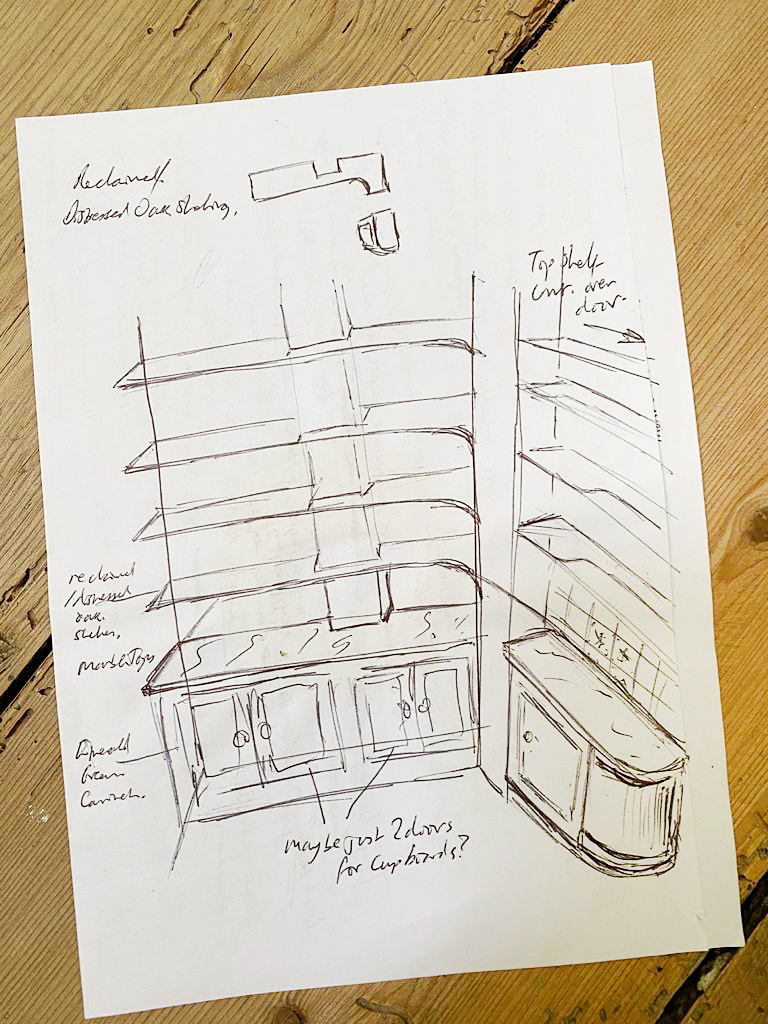 Reclaimed/
Distressed Oak Shelving.
Top shelf
cont. over
door.
reclaimed
/distressed
oak.
shelves.
Marble Tops
Emerald
Green
Cabinet.
maybe just 2 doors
for cupboards?